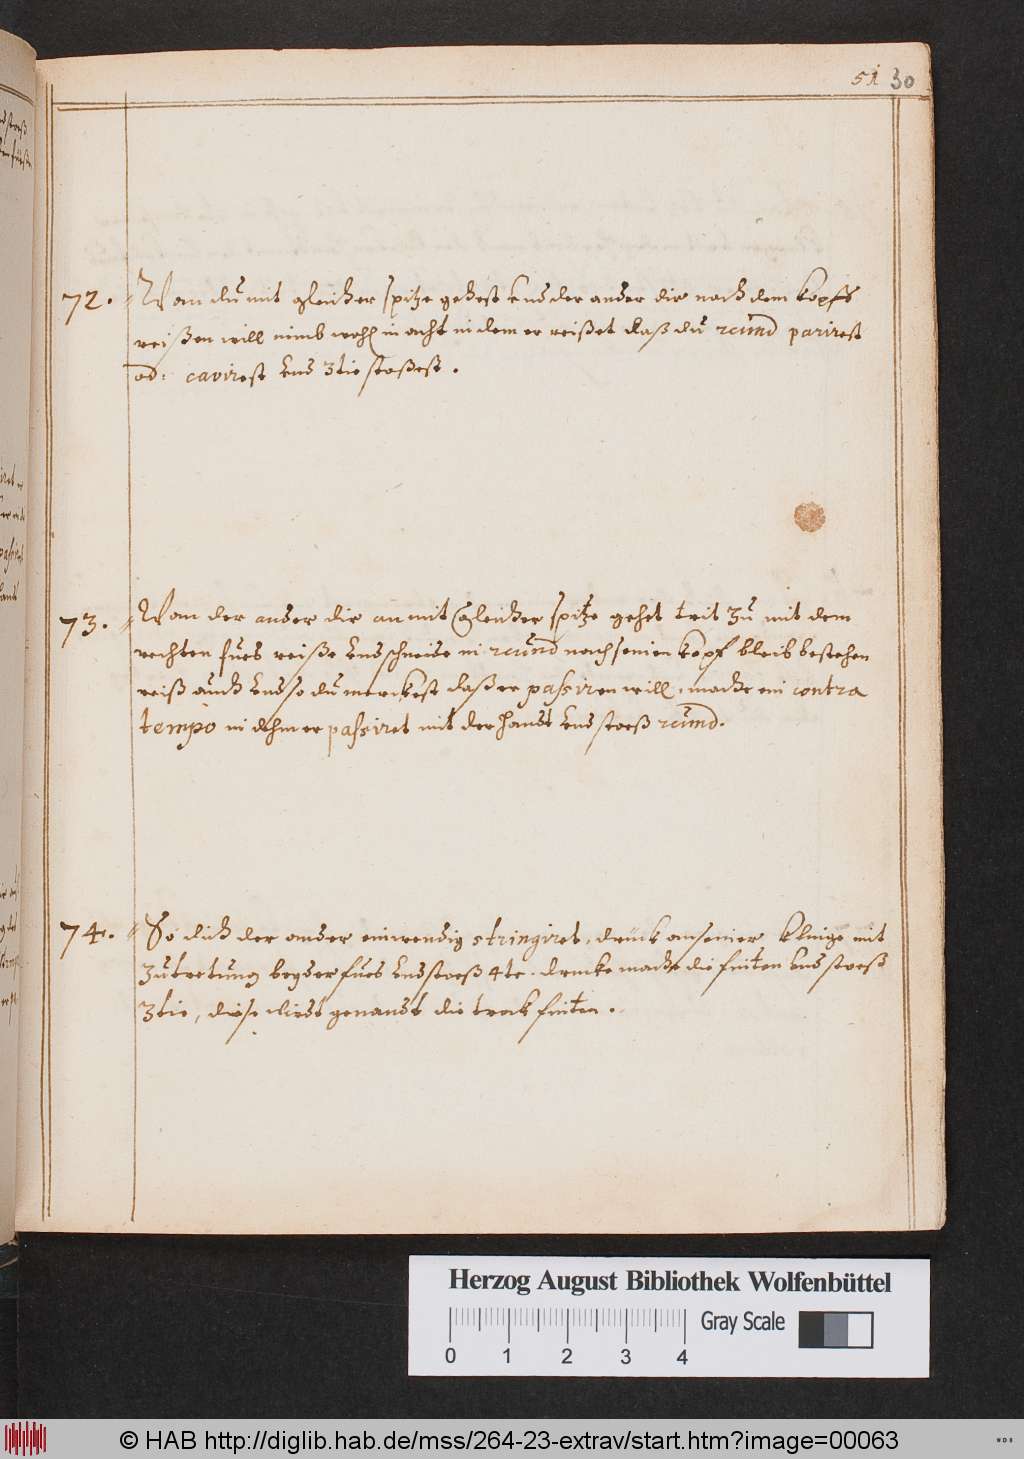 51 30
72. Wan du mit gleicher spitze gehest und der ander dir nach dem kopffe
reißen will nimb wohl in acht in dem er reißet daß du 2cund parirest
od: cavirest und 3tie stoßest.
73. Wan der ander dir an mit gleicher spitze gehet trit zu mit dem
rechten fues reiße und schneide in 2cund nach seinen kopf bleib bestehen
reiß auch und so du merckest daß er passiren will, mache ein contra
tempo in dehm er passiret mit der handt und stoeß 2cund.
74. So dich der ander einwendig stringiret, druck an seiner klinge mit
zutretung beyder fues und stoeß 4te. drucke mache die finten und stoeß
3tie, diese wirdt genandt die finten.
Herzog August Bibliothek Wolfenbüttel
0 1 2 3 4 Gray Scale
© HAB http://diglib.hab.de/mss/264-23-extrav/start.htm?image=00063